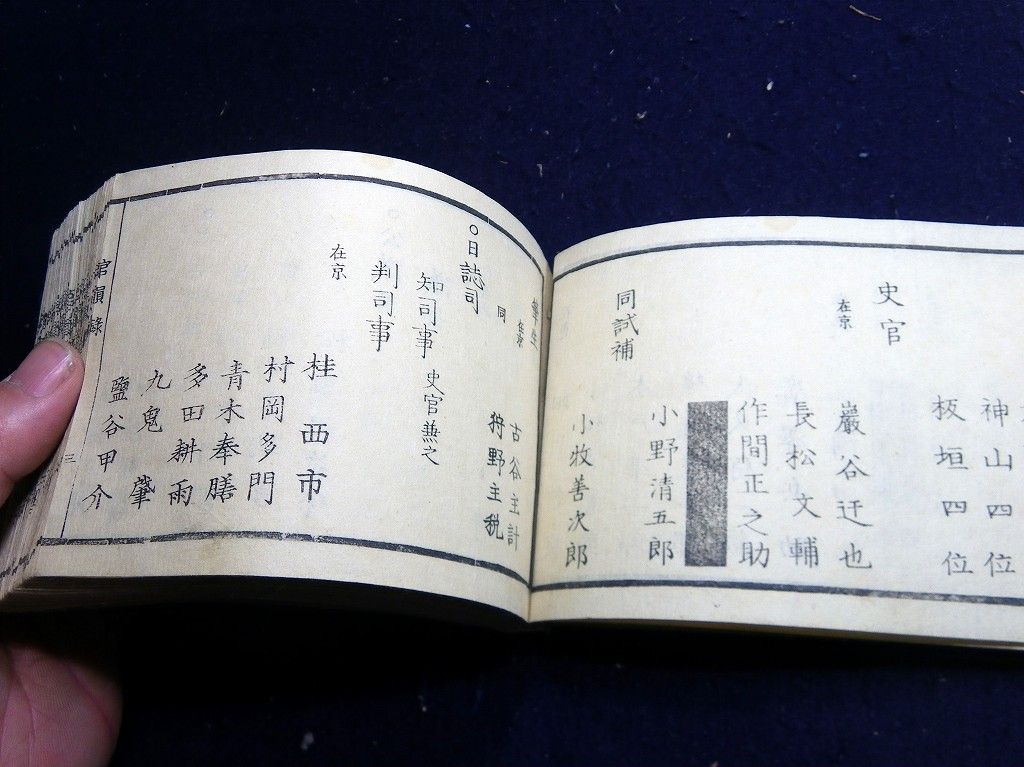 神山四位
板垣四位
史官
在京
巖谷迂也
長松文輔
作間正之助
小野清五郎
同試補
小牧善次郎
古谷主計
同 狩野主税
〇日誌司
知司事 史官兼之
判司事
在京
桂西市
村岡多門
青木奉膳
多田耕雨
九鬼肇
鹽谷甲介
三